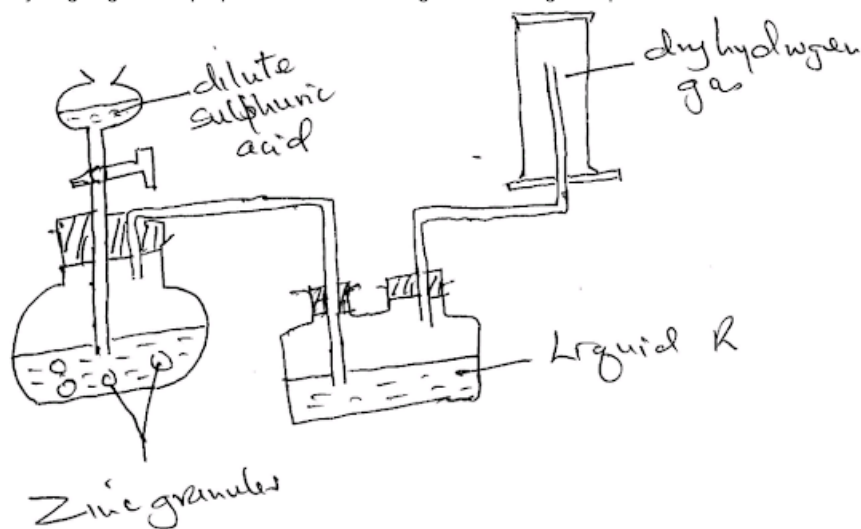 dilute
sulphuric
acid
dry hydrogen
gas
Liquid R
Zinc granules